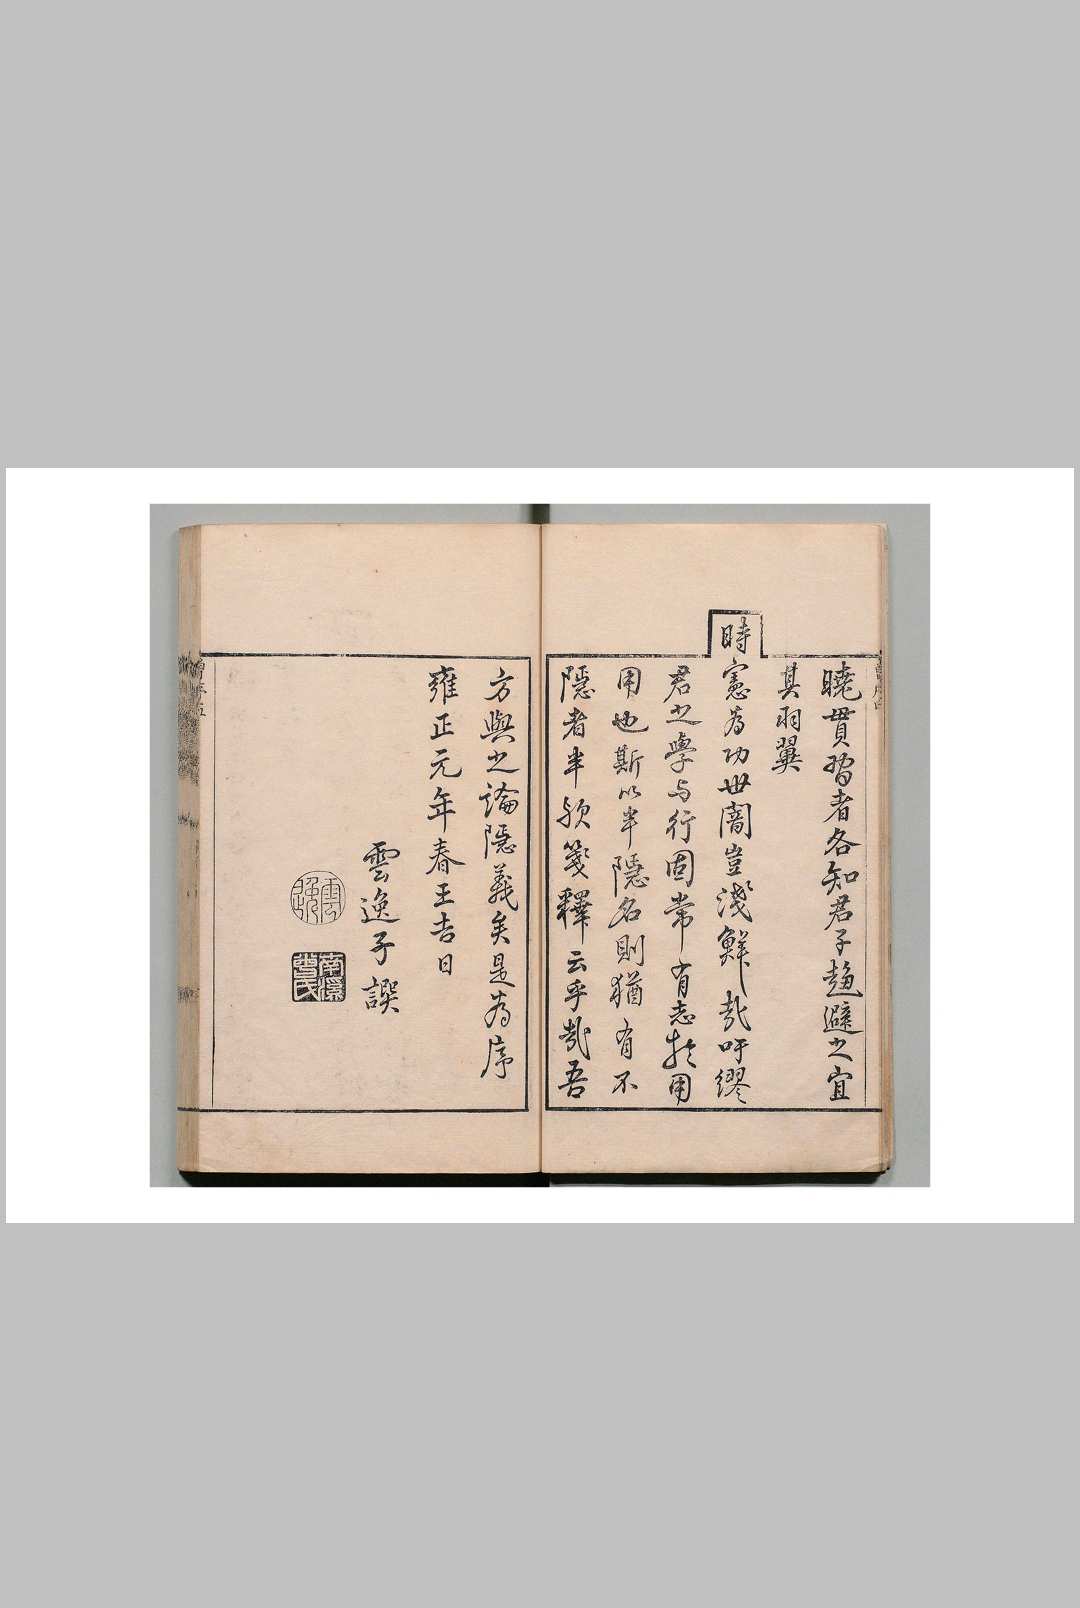 曉貫習者各知君子趨避之宜
其羽翼
時憲為功世闇豈淺鮮哉吁繆
君之學与行固常有志於用
用也斯以半隱名則猶有不
隱者半於箋釋云乎哉吾
方與之論隱義矣是為序
雍正元年春王吉日
雲逸子譔